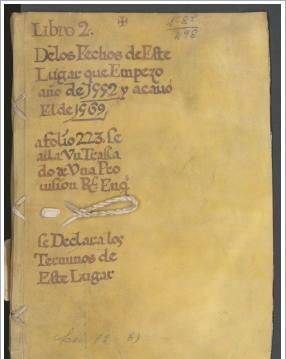 Libro 2.
Delos Fechos de Este
Lugar que Empezo
año de 1552 y acavó
El de 1569
a folio 223. se
alla Vn Trasla
do de Vna Pro
uision Rˡ. En q̃
se Declara los
Terminos de
Este Lugar